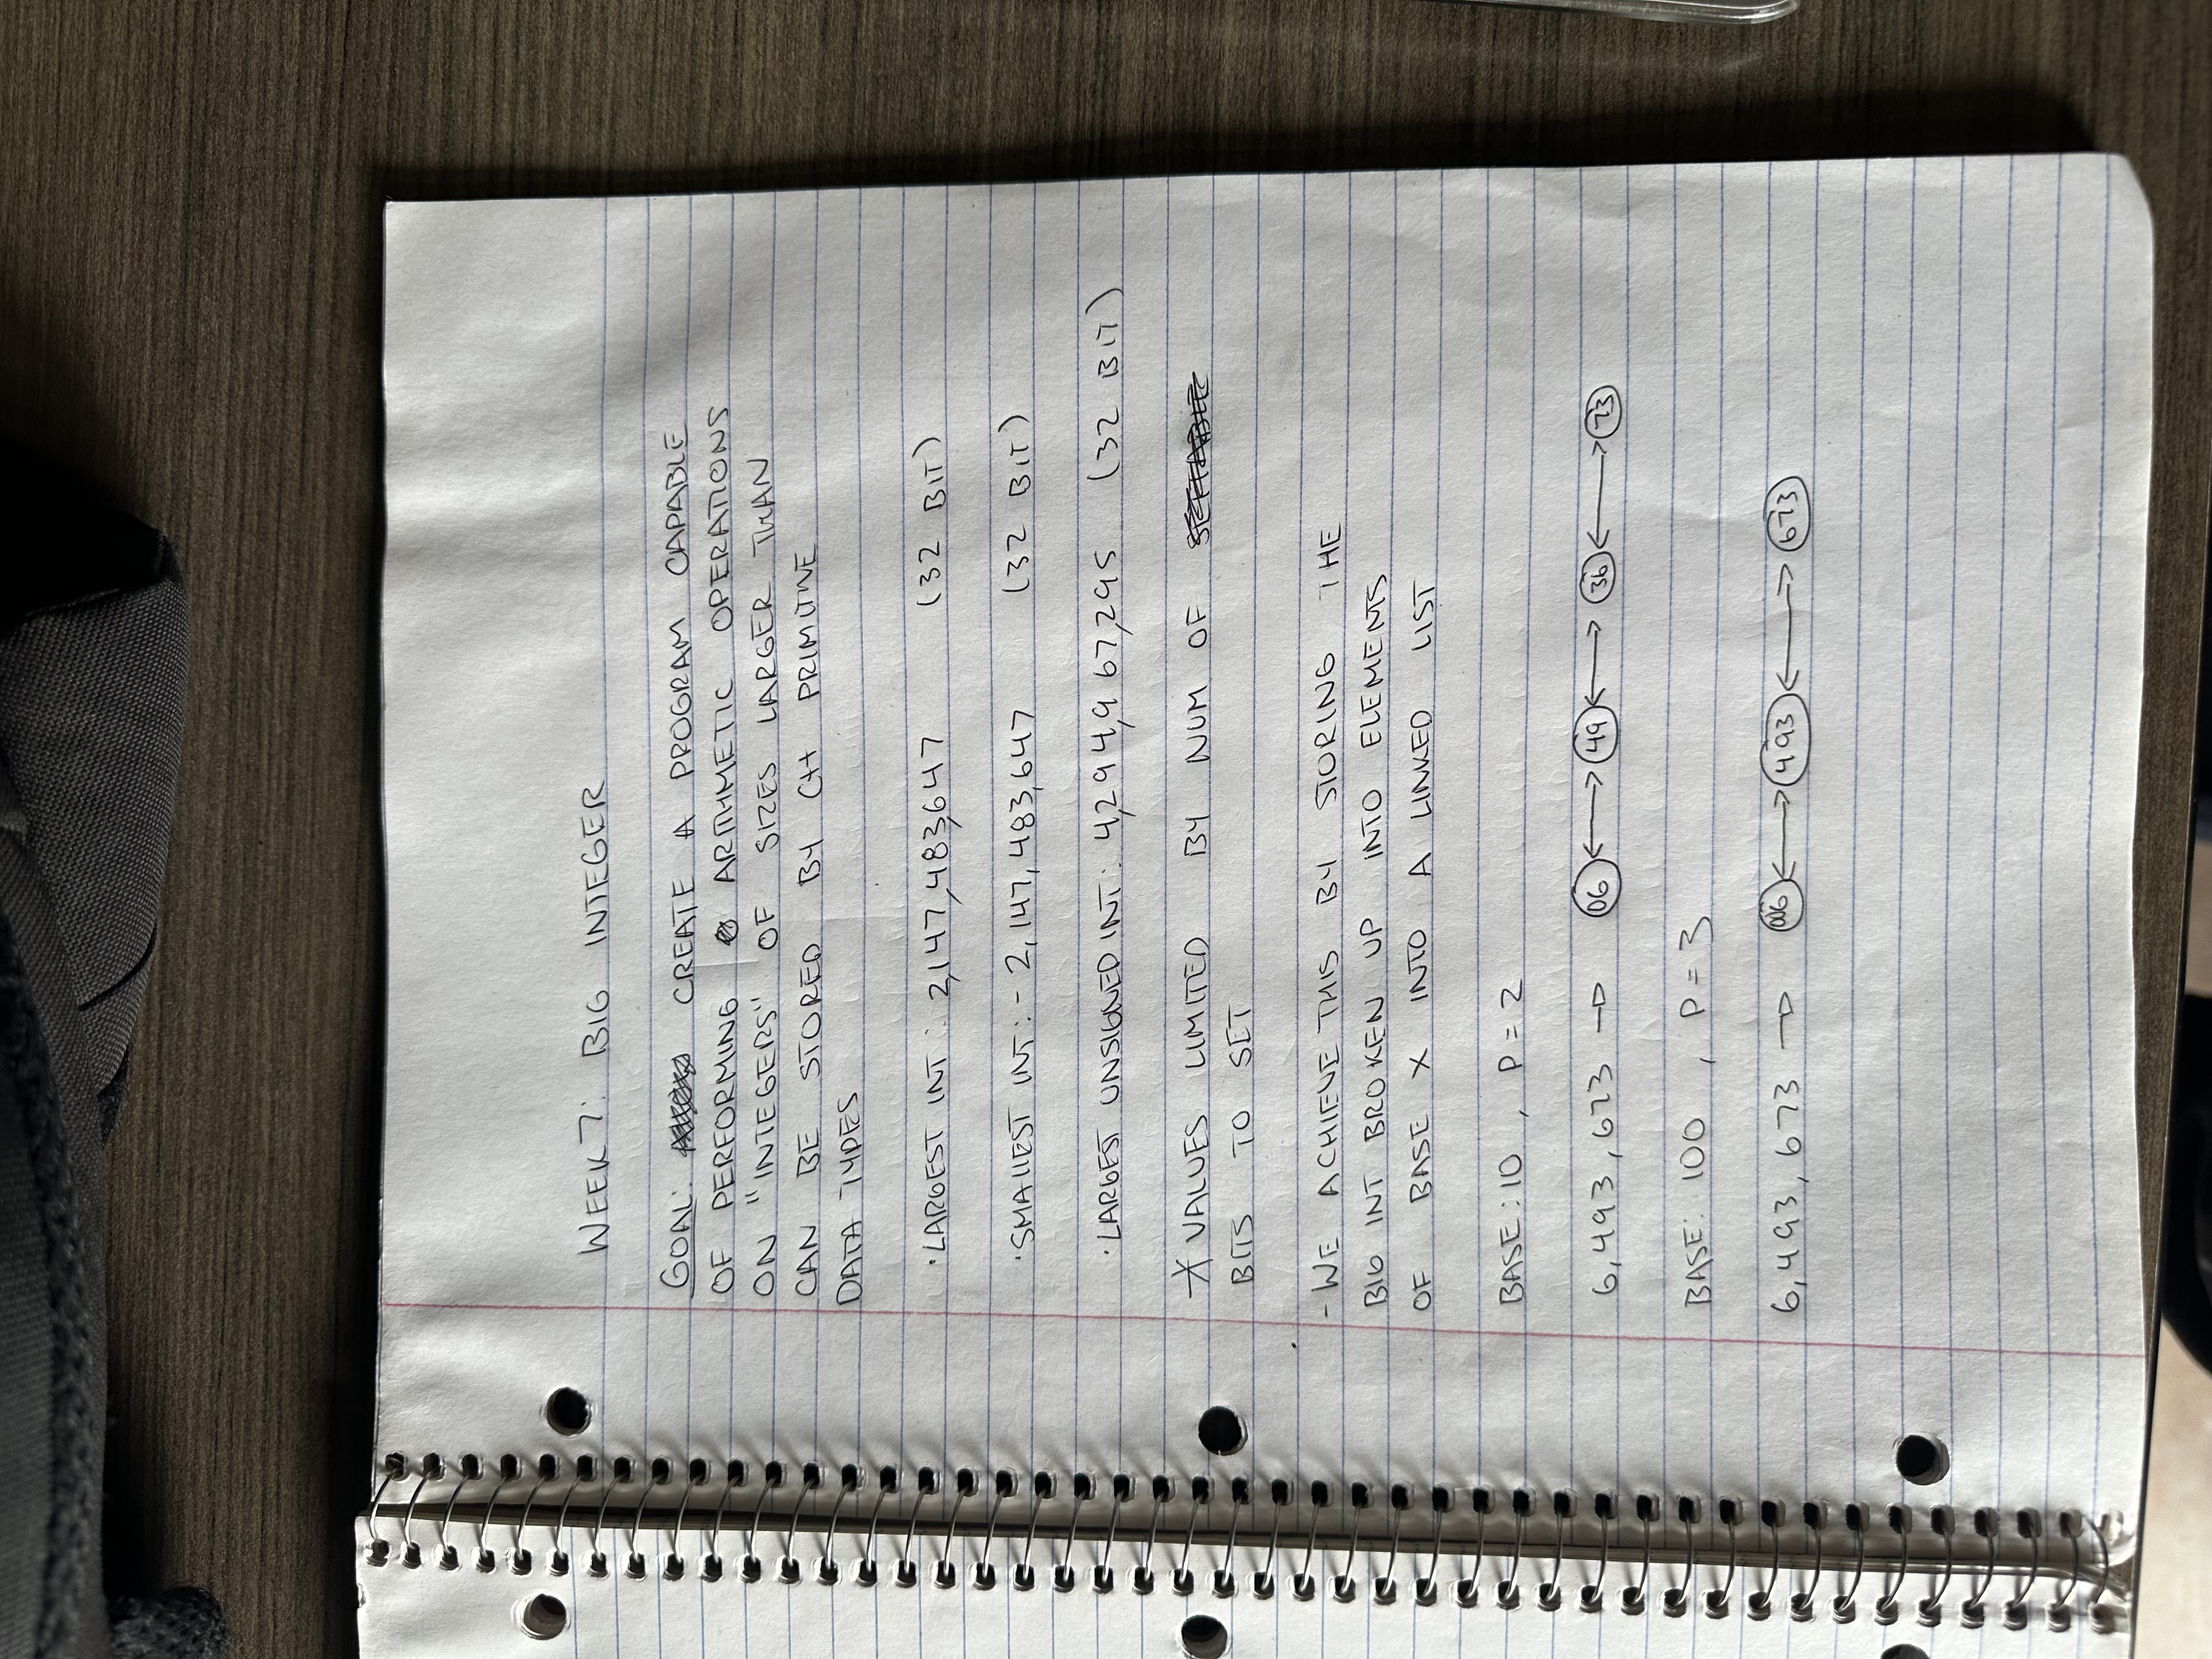 WEEK 7: BIG INTEGER
GOAL: CREATE A PROGRAM CAPABLE
OF PERFORMING ARITHMETIC OPERATIONS
ON "INTEGERS" OF SIZES LARGER THAN
CAN BE STORED BY C++ PRIMITIVE
DATA TYPES
·LARGEST INT : 2,147,483,647 (32 BIT)
·SMALLEST INT: - 2,147,483,647 (32 BIT)
·LARGEST UNSIGNED INT: 4,294,967,295 (32 BIT)
* VALUES LIMITED BY NUM OF
BITS TO SET
- WE ACHIEVE THIS BY STORING THE
BIG INT BROKEN UP INTO ELEMENTS
OF BASE X INTO A LINKED LIST
BASE: 10 , P = 2
6,493,673 → 06 ↔ 49 ↔ 36 ↔ 73
BASE: 100 , P = 3
6,493,673 → 006 ↔ 493 ↔ 673